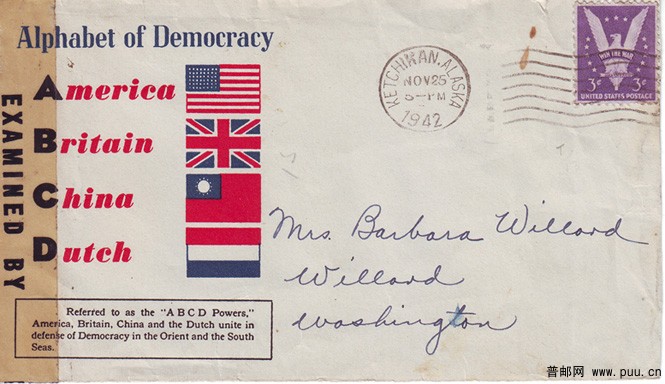 Alphabet of Democracy
EXAMINED BY
America
Britain
China
Dutch
Referred to as the "ABCD Powers,"
America, Britain, China and the Dutch unite in
defense of Democracy in the Orient and the South
Seas.
KETCHIKAN, ALASKA
NOV 25
5-PM
1942
WIN THE WAR
3¢ 3¢
UNITED STATES POSTAGE
Mrs. Barbara Willard
Willard
Washington
普邮网 www.puu.cn